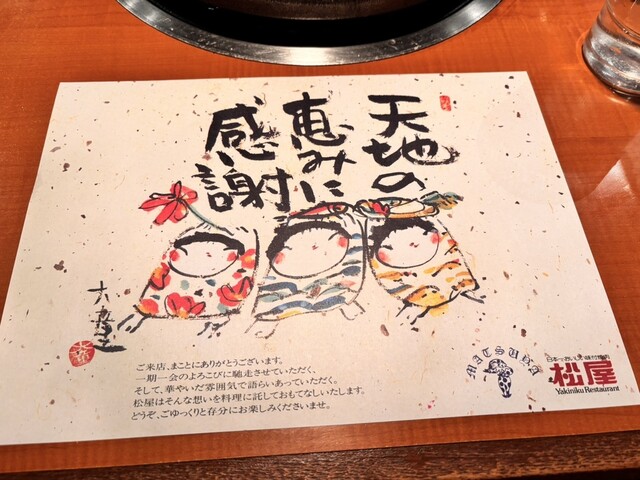 天地の
恵みに
感謝
ご来店、まことにありがとうございます。
一期一会のよろこびに馳走させていただく、
そして、華やいだ雰囲気で語らいあっていただく。
松屋はそんな想いを料理に託しておもてなしいたします。
どうぞ、ごゆっくりと存分にお楽しみくださいませ。
MATSUYA
日本一おいしい味付焼肉
松屋
Yakiniku Restaurant